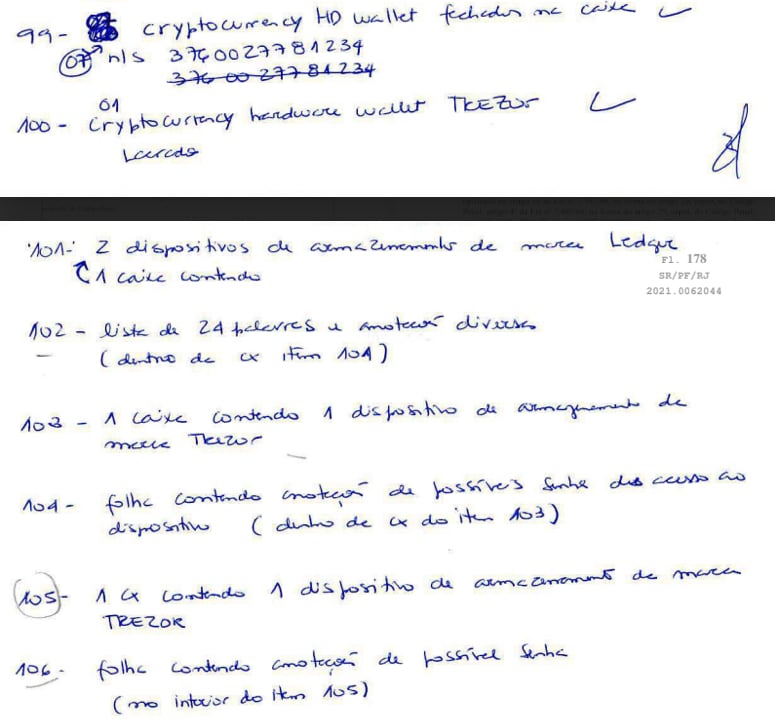 99- cryptocurrency HD wallet fechados na caixa
07 n/s 3760027781234
3760027781234
01
100- Cryptocurrency hardware wallet TREZOR
Lacrado
101- 2 dispositivos de armazenamento de marca Ledger
1 caixa contendo
Fl. 178
SR/PF/RJ
2021.0062044
102 - lista de 24 palavras e anotações diversas
(dentro da cx item 101)
103 - 1 caixa contendo 1 dispositivo de armazenamento de
marca Trezor
104 - folha contendo anotação de possíveis senha de acesso ao
dispositivo (dentro de cx do item 103)
105 - 1 cx contendo 1 dispositivo de armazenamento de marca
TREZOR
106 - folha contendo anotação de possível senha
(no interior do item 105)